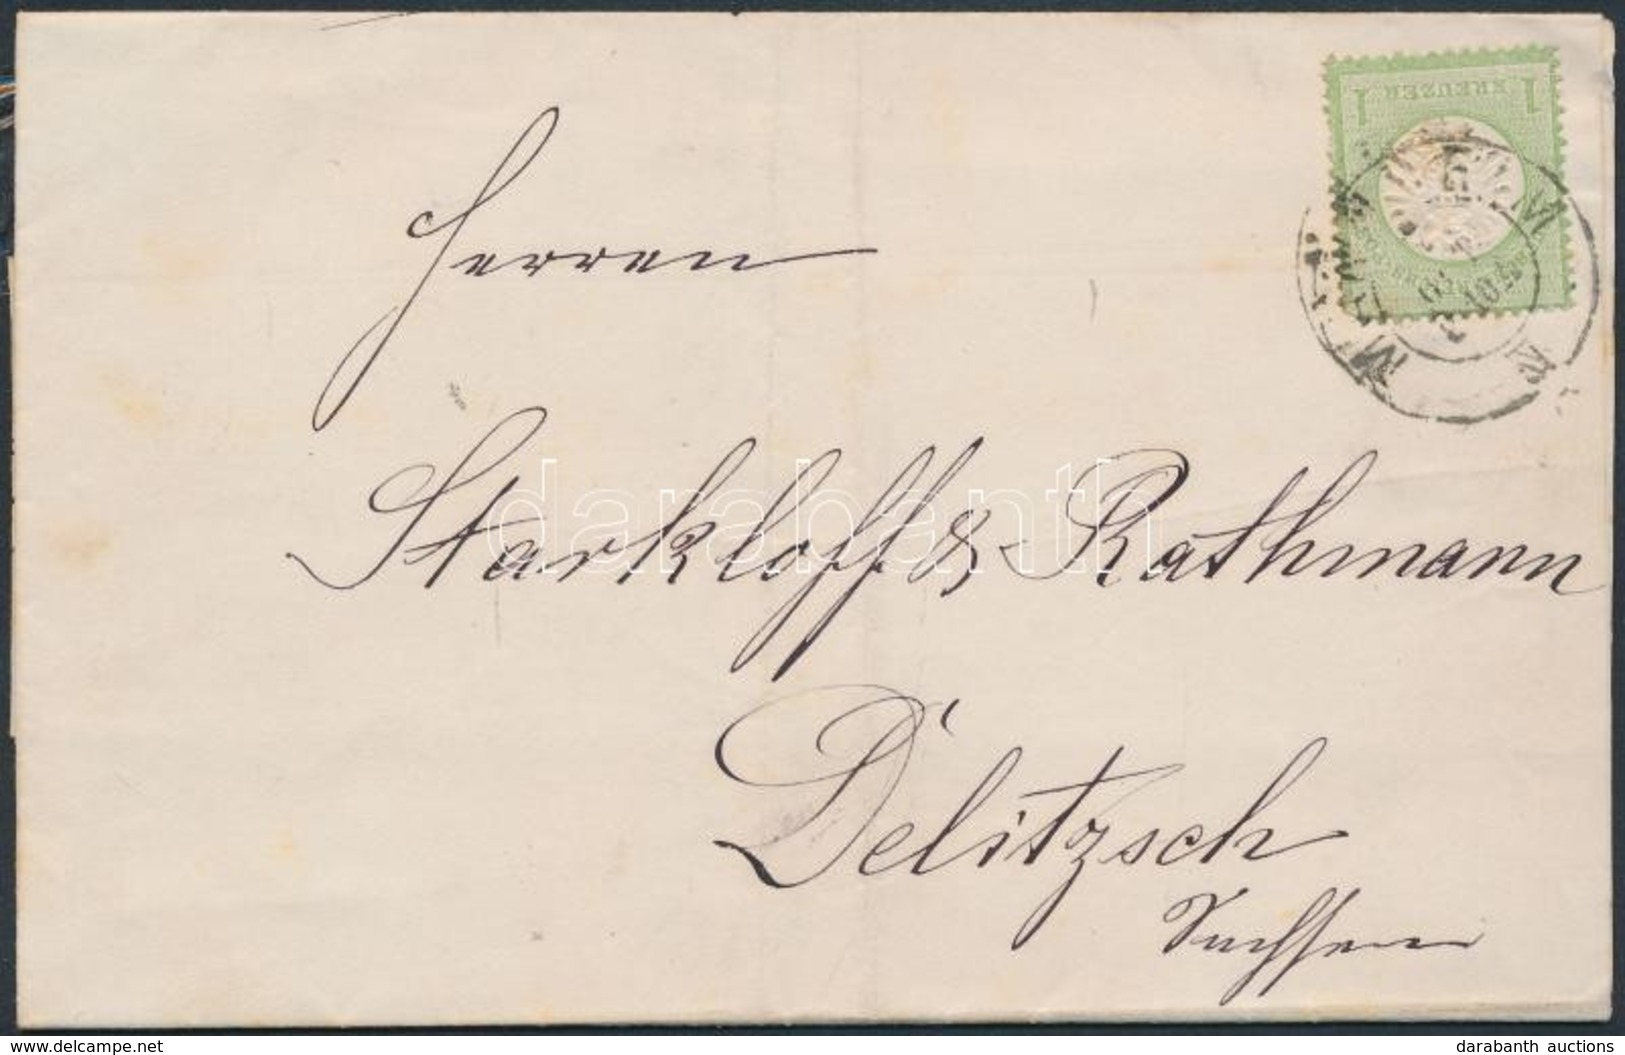 1 KREUZER 1
Herren
Starkloff & Rathmann
Delitzsch
Sachsen
darabanth
www.delcampe.net
darabanth auctions